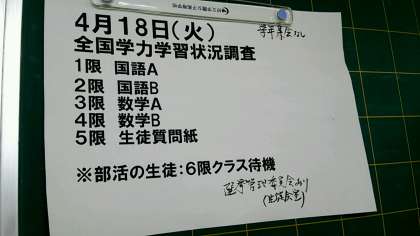 4月18日(火)
学年集会なし
全国学力学習状況調査
1限 国語A
2限 国語B
3限 数学A
4限 数学B
5限 生徒質問紙
※部活の生徒:6限クラス待機
選挙管理委員会あり
(生徒会室)